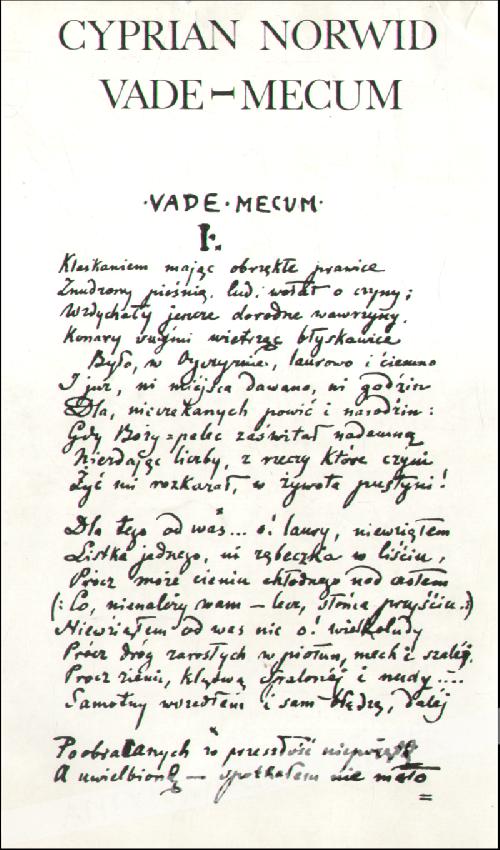 CYPRIAN NORWID
VADE-MECUM
·VADE·MECUM·
I.
Klaskaniem mając obrzękłe prawice
Znudzony pieśnią, lud, wołał o czyny;
Wzdychały jeszcze dorodne wawrzyny,
Konary swymi wietrząc błyskawice
Było, w Ojczyźnie, laurowo i ciemno
I już, ni miejsca dawano, ni godzin
Dla, nieczekanych powić i narodzin:
Gdy Boży-palec zaświtał nademną
Niezdając liczby, z rzeczy które czyni
Żyć mi rozkazał, w żywota pustyni!
Dla tego od was... o! laury, niewziąłem
Listka jednego, ni ząbeczka w liściu,
Prócz może cieniu chłodnego nad czołem
(: Co, nienależy wam – lecz, słońca przyjściu. :)
Niewziąłem od was nic o! wielkoludy
Prócz dróg zarosłych w piołun, mech i szalej,
Prócz ziemi, klątwą spalonéj i nudy....
Samotny wszedłem i sam błądzę, daléj
Poobracanych w przeszłość
A — spotkałem nie mało